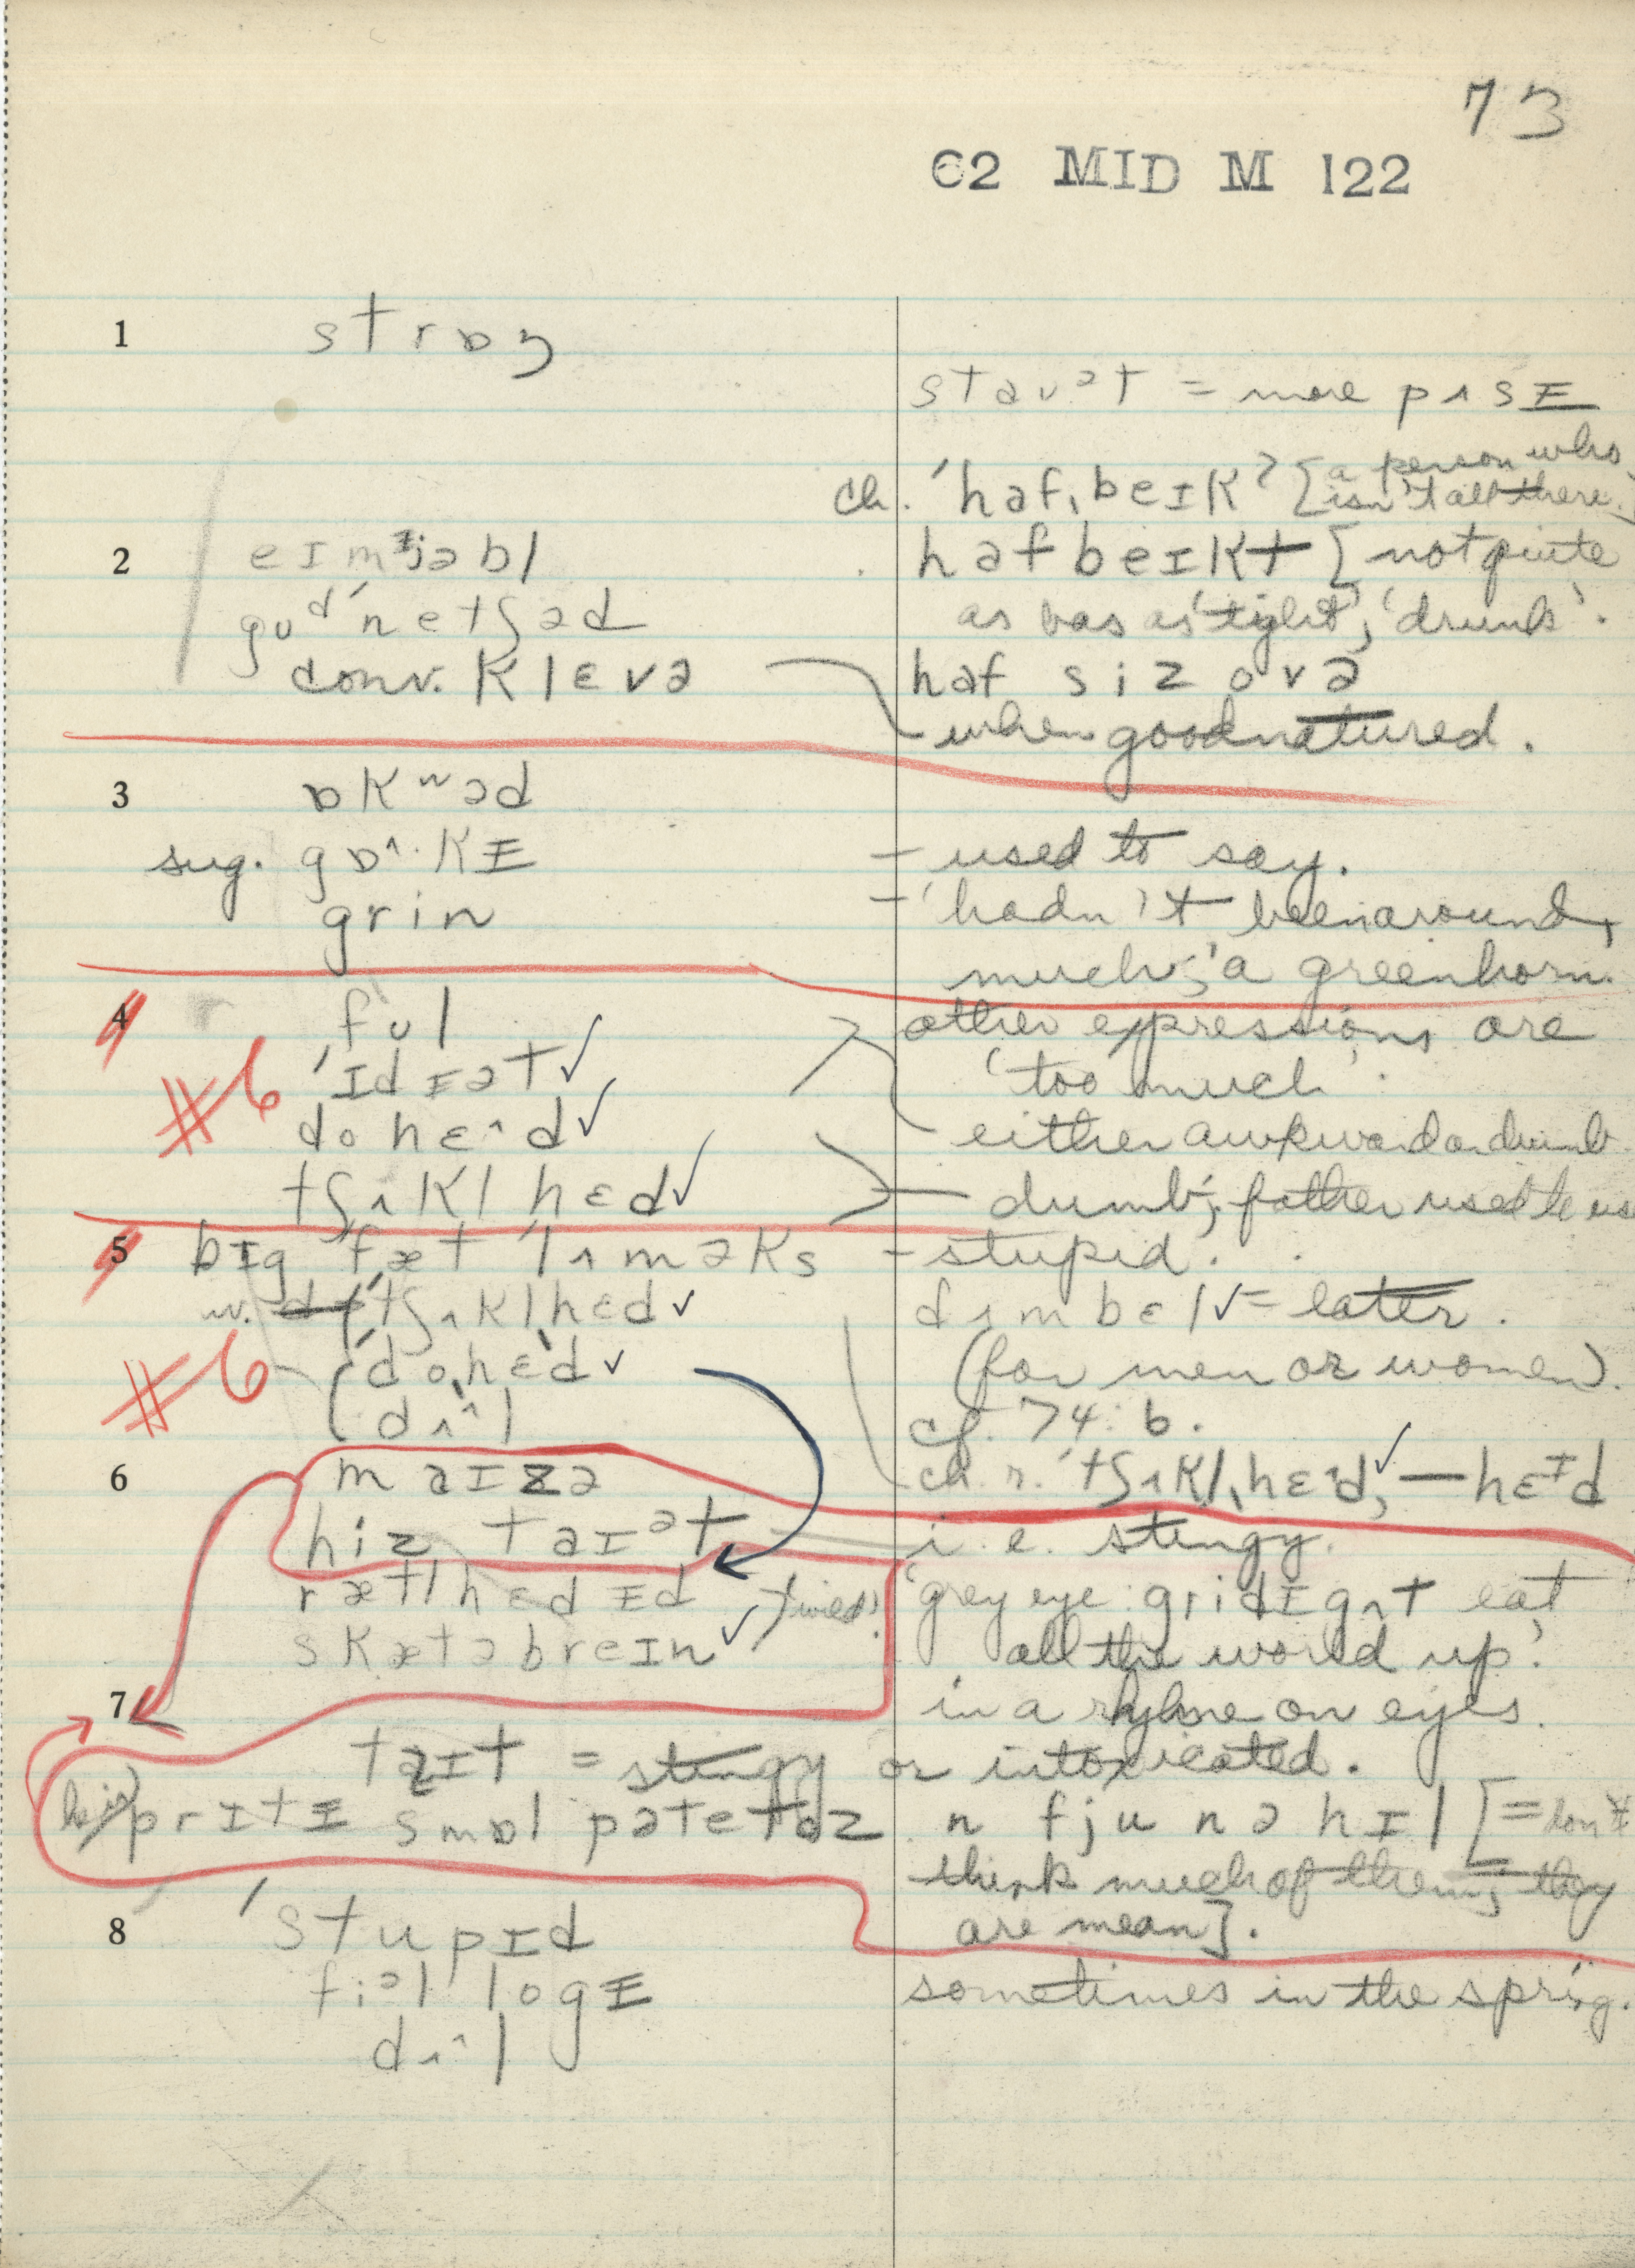 73
62 MID M 122
1 strɒŋ
staʊᵊt = more pʌsɪ
ch. ˈhafˌbeɪk? [a person who
isn't all there.]
2 eɪmɪjəbl hafbeɪkt [not quite
gʊdˈnetʃəd as bas as 'tight', 'drunk'.
conv. klɛvə haf siz ovə
when goodnatured.
3 ɒkʷəd
sug. gɒ^·kɪ – used to say.
grin – 'hadn't been around,
much', 'a greenhorn.
4 fʊl other expressions are
#6 ˈɪdɪət ✓ 'too much'.
dohɛ^d ✓ either awkward or dumb
tʃʌkl hɛd ✓ – dumb; father used to us
5 bɪg fæt lʌməks – stupid.
nv. tʃʌklhɛd ✓ dʌmbɛl ✓ = later.
#6 (ˈdoˌhɛd ✓ (for men or women).
(dʌ^l cf. 74:6.
6 maɪzə ch. r. ˈtʃʌklˌhɛ^d, ✓ — hɛᶦd
hiz taɪᵊt i.e. stingy.
rætlhɛdɪd 'grey eye gridɪgʌt eat
skætəbreɪn ✓ all the world up'.
7 in a rhyme on eyes.
taɪt = stingy or intoxicated.
prɪtɪ smɒl pətetəz n fju n ə hɪl [= don't
think much of them; they
are mean].
8 ˈstupɪd
fiᵊl logɪ sometimes in the spring.
dʌ^l